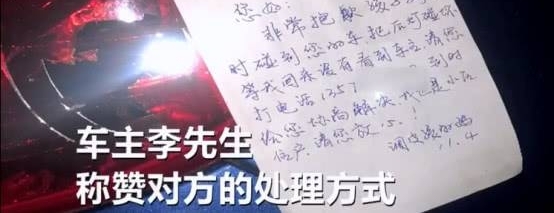 您好:
非常抱歉
时碰到您的车,把后灯碰坏
等我回来没有看到车主,请您
打电话1357 到时
给您协商解决,我也是小区
住户,请您放心!
11.4
车主李先生
称赞对方的处理方式